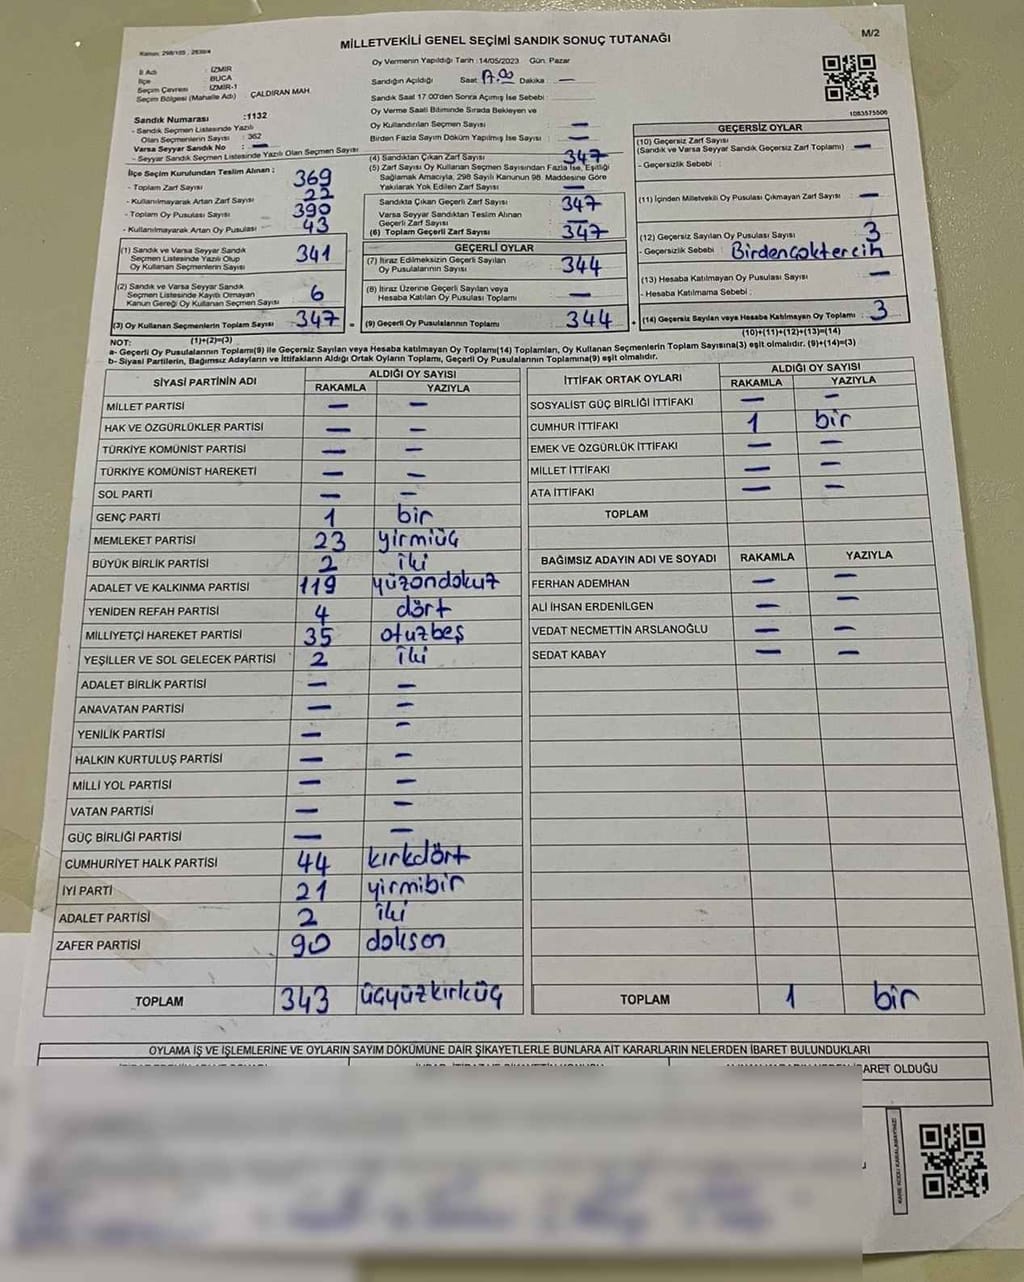 Kanun: 298/105 , 2839/4
MİLLETVEKİLİ GENEL SEÇİMİ SANDIK SONUÇ TUTANAĞI
M/2
İl Adı : İZMİR
İlçe : BUCA
Seçim Çevresi : İZMİR-1
Seçim Bölgesi (Mahalle Adı) ÇALDIRAN MAH.
Sandık Numarası :1132
- Sandık Seçmen Listesinde Yazılı
Olan Seçmenlerin Sayısı : 362
Varsa Seyyar Sandık No : —
- Seyyar Sandık Seçmen Listesinde Yazılı Olan Seçmen Sayısı
İlçe Seçim Kurulundan Teslim Alınan :
- Toplam Zarf Sayısı 369
- Kullanılmayarak Artan Zarf Sayısı 22
- Toplam Oy Pusulası Sayısı 390
- Kullanılmayarak Artan Oy Pusulası 43
(1) Sandık ve Varsa Seyyar Sandık
Seçmen Listesinde Yazılı Olup
Oy Kullanan Seçmenlerin Sayısı 341
(2) Sandık ve Varsa Seyyar Sandık
Seçmen Listesinde Kayıtlı Olmayan
Kanun Gereği Oy Kullanan Seçmen Sayısı 6
(3) Oy Kullanan Seçmenlerin Toplam Sayısı 347
Oy Vermenin Yapıldığı Tarih :14/05/2023 Gün: Pazar
Sandığın Açıldığı Saat 17.00 Dakika : —
Sandık Saat 17.00'den Sonra Açılmış İse Sebebi :
Oy Verme Saati Bitiminde Sırada Bekleyen ve
Oy Kullandırılan Seçmen Sayısı : —
Birden Fazla Sayım Döküm Yapılmış İse Sayısı : —
(4) Sandıktan Çıkan Zarf Sayısı 347
(5) Zarf Sayısı Oy Kullanan Seçmen Sayısından Fazla İse, Eşitliği
Sağlamak Amacıyla, 298 Sayılı Kanunun 98. Maddesine Göre
Yakılarak Yok Edilen Zarf Sayısı —
Sandıkta Çıkan Geçerli Zarf Sayısı 347
Varsa Seyyar Sandıktan Teslim Alınan
Geçerli Zarf Sayısı : —
(6) Toplam Geçerli Zarf Sayısı 347
GEÇERLİ OYLAR
(7) İtiraz Edilmeksizin Geçerli Sayılan
Oy Pusulalarının Sayısı 344
(8) İtiraz Üzerine Geçerli Sayılan veya
Hesaba Katılan Oy Pusulası Toplamı —
= (9) Geçerli Oy Pusulalarının Toplamı 344
1083575506
GEÇERSİZ OYLAR
(10) Geçersiz Zarf Sayısı
(Sandık ve Varsa Seyyar Sandık Geçersiz Zarf Toplamı) : —
- Geçersizlik Sebebi :
(11) İçinden Milletvekili Oy Pusulası Çıkmayan Zarf Sayısı : —
(12) Geçersiz Sayılan Oy Pusulası Sayısı : 3
- Geçersizlik Sebebi : Birdençoktercih
(13) Hesaba Katılmayan Oy Pusulası Sayısı : —
- Hesaba Katılmama Sebebi :
+ (14) Geçersiz Sayılan veya Hesaba Katılmayan Oy Toplamı : 3
NOT: (1)+(2)=(3) (10)+(11)+(12)+(13)=(14)
a- Geçerli Oy Pusulalarının Toplamı(9) ile Geçersiz Sayılan veya Hesaba katılmayan Oy Toplamı(14) Toplamları, Oy Kullanan Seçmenlerin Toplam Sayısına(3) eşit olmalıdır. (9)+(14)=(3)
b- Siyasi Partilerin, Bağımsız Adayların ve İttifakların Aldığı Ortak Oyların Toplamı, Geçerli Oy Pusulalarının Toplamına(9) eşit olmalıdır.
SİYASİ PARTİNİN ADI ALDIĞI OY SAYISI
RAKAMLA YAZIYLA
MİLLET PARTİSİ — —
HAK VE ÖZGÜRLÜKLER PARTİSİ — —
TÜRKİYE KOMÜNİST PARTİSİ — —
TÜRKİYE KOMÜNİST HAREKETİ — —
SOL PARTİ — —
GENÇ PARTİ 1 bir
MEMLEKET PARTİSİ 23 yirmiüç
BÜYÜK BİRLİK PARTİSİ 2 iki
ADALET VE KALKINMA PARTİSİ 119 yüzondokuz
YENİDEN REFAH PARTİSİ 4 dört
MİLLİYETÇİ HAREKET PARTİSİ 35 otuzbeş
YEŞİLLER VE SOL GELECEK PARTİSİ 2 iki
ADALET BİRLİK PARTİSİ — —
ANAVATAN PARTİSİ — —
YENİLİK PARTİSİ — —
HALKIN KURTULUŞ PARTİSİ — —
MİLLİ YOL PARTİSİ — —
VATAN PARTİSİ — —
GÜÇ BİRLİĞİ PARTİSİ — —
CUMHURİYET HALK PARTİSİ 44 kırkdört
İYİ PARTİ 21 yirmibir
ADALET PARTİSİ 2 iki
ZAFER PARTİSİ 90 doksan
TOPLAM 343 üçyüzkırküç
İTTİFAK ORTAK OYLARI ALDIĞI OY SAYISI
RAKAMLA YAZIYLA
SOSYALİST GÜÇ BİRLİĞİ İTTİFAKI — —
CUMHUR İTTİFAKI 1 bir
EMEK VE ÖZGÜRLÜK İTTİFAKI — —
MİLLET İTTİFAKI — —
ATA İTTİFAKI — —
TOPLAM
BAĞIMSIZ ADAYIN ADI VE SOYADI RAKAMLA YAZIYLA
FERHAN ADEMHAN — —
ALİ İHSAN ERDENİLGEN — —
VEDAT NECMETTİN ARSLANOĞLU — —
SEDAT KABAY — —
TOPLAM 1 bir
OYLAMA İŞ VE İŞLEMLERİNE VE OYLARIN SAYIM DÖKÜMÜNE DAİR ŞİKAYETLERLE BUNLARA AİT KARARLARIN NELERDEN İBARET BULUNDUKLARI
İBARET OLDUĞU